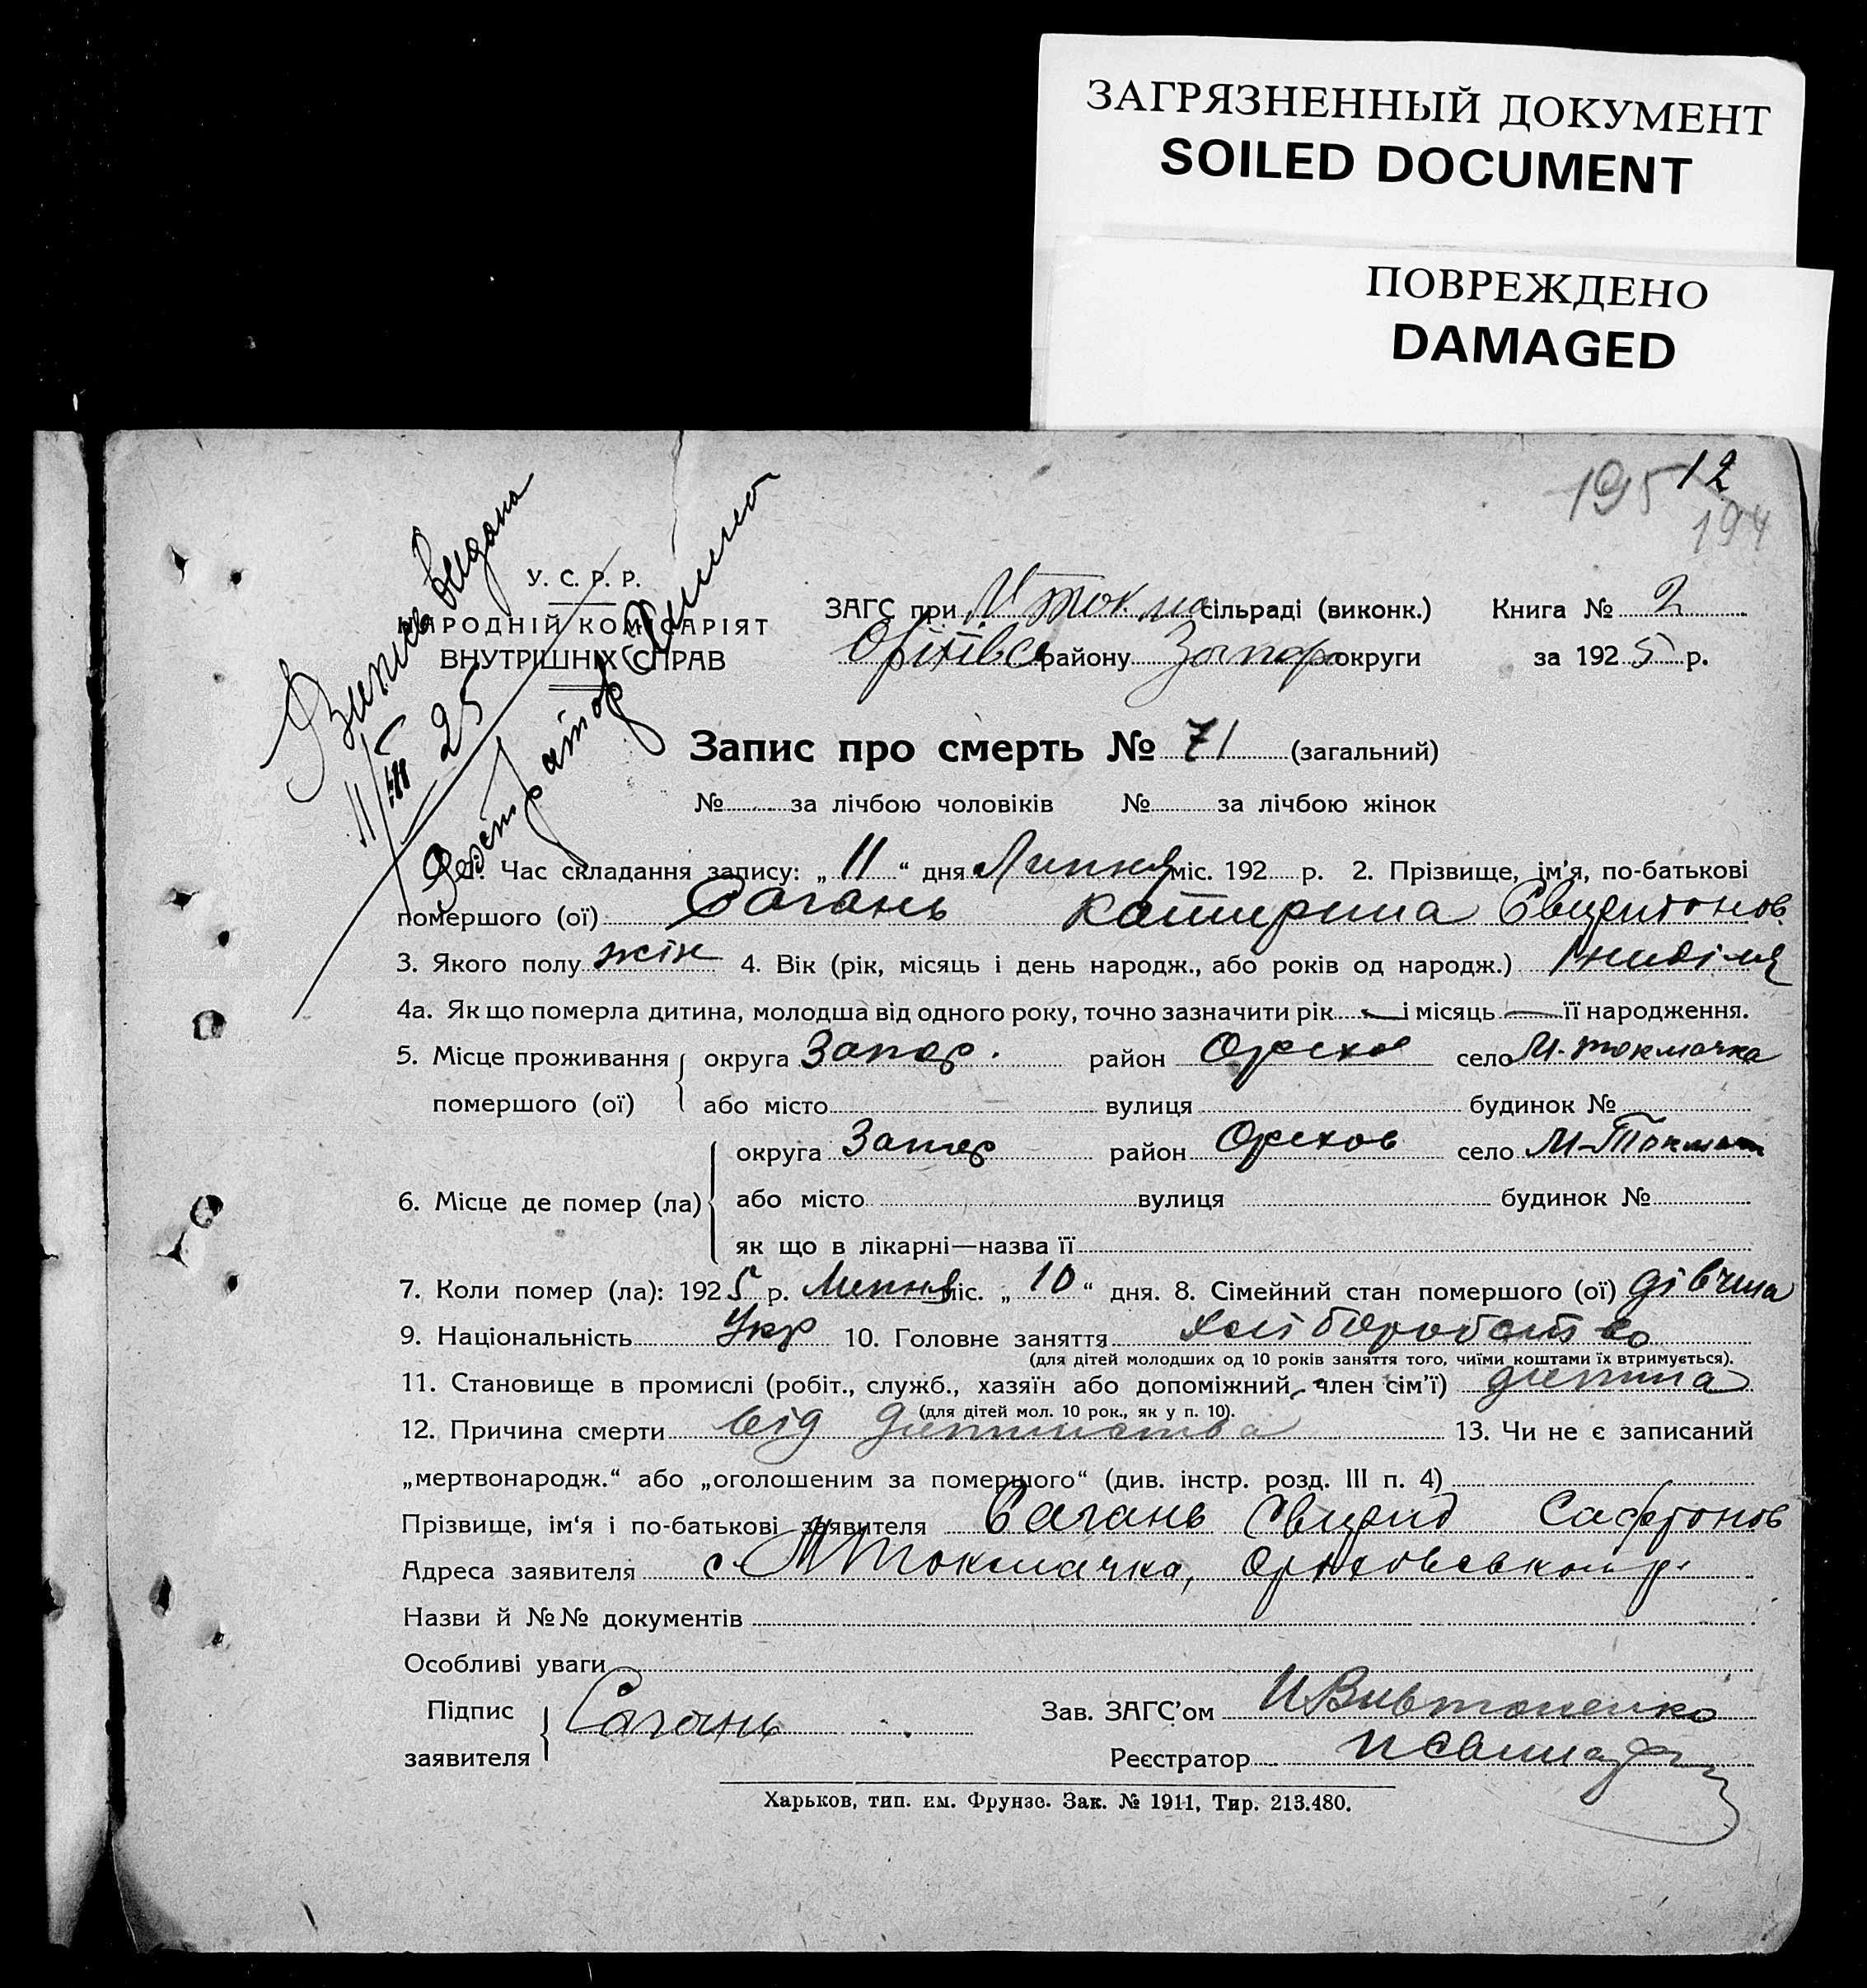 ЗАГРЯЗНЕННЫЙ ДОКУМЕНТ
SOILED DOCUMENT
ПОВРЕЖДЕНО
DAMAGED
12
195
194
Випись видана
11/VII 25
У. С. Р. Р.
НАРОДНІЙ КОМІСАРІЯТ
ВНУТРІШНІХ СПРАВ
ЗАГС при М Токма сільраді (виконк.) Книга № 2
Оріхівсь району Запор округи за 1925 р.
Запис про смерть № 71 (загальний)
№ за лічбою чоловіків № за лічбою жінок
1. Час складання запису: „ 11 “ дня Липня міс. 192 р. 2. Прізвище, ім'я, по-батькові
помершого (ої) Сагань Катирина Свиридонов
3. Якого полу жін 4. Вік (рік, місяць і день народж., або років од народж.) 1 ниділя
4а. Як що померла дитина, молодша від одного року, точно зазначити рік — і місяць — її народження.
5. Місце проживання округа Запор. район Орехов село М-токмачка
помершого (ої) або місто вулиця будинок №
округа Запор район Орехов село М-Токмач
6. Місце де помер (ла) або місто вулиця будинок №
як що в лікарні—назва її
7. Коли помер (ла): 1925 р. Липня міс. „ 10 “ дня. 8. Сімейний стан помершого (ої) дівчина
9. Національність Укр 10. Головне заняття хліборобство
(для дітей молодших од 10 років заняття того, чиїми коштами їх втримується).
11. Становище в промислі (робіт., служб., хазяїн або допоміжний член сім'ї) дитина
(для дітей мол. 10 рок., як у п. 10).
12. Причина смерти від дитинства 13. Чи не є записаний
„мертвонародж.“ або „оголошеним за помершого“ (див. інстр. розд. III п. 4)
Прізвище, ім'я і по-батькові заявителя Сагань Свирид Сафронов
Адреса заявителя с. М Токмачка, Оріховськ р.
Назви й №№ документів
Особливі уваги
Підпис
заявителя Сагань
Зав. ЗАГС'ом
Реєстратор
Харьков, тип. им. Фрунзе. Зак. № 1911, Тир. 213.480.